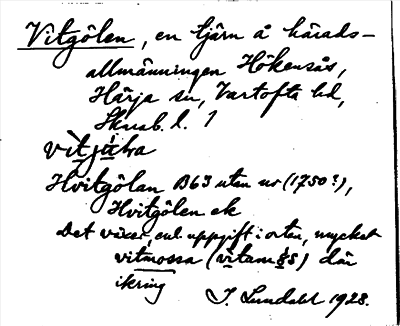 Vitgölen, en tjärn å härads-
allmänningen Hökensås,
Härja sn, Vartofta hd,
Skarab. l. 1
Hvitgölan B63 utan nr (1750?),
Hvitgölen ek
Det växer, enl. uppgift i orten, mycket
vitmossa där
ikring
J. Lundahl 1928.